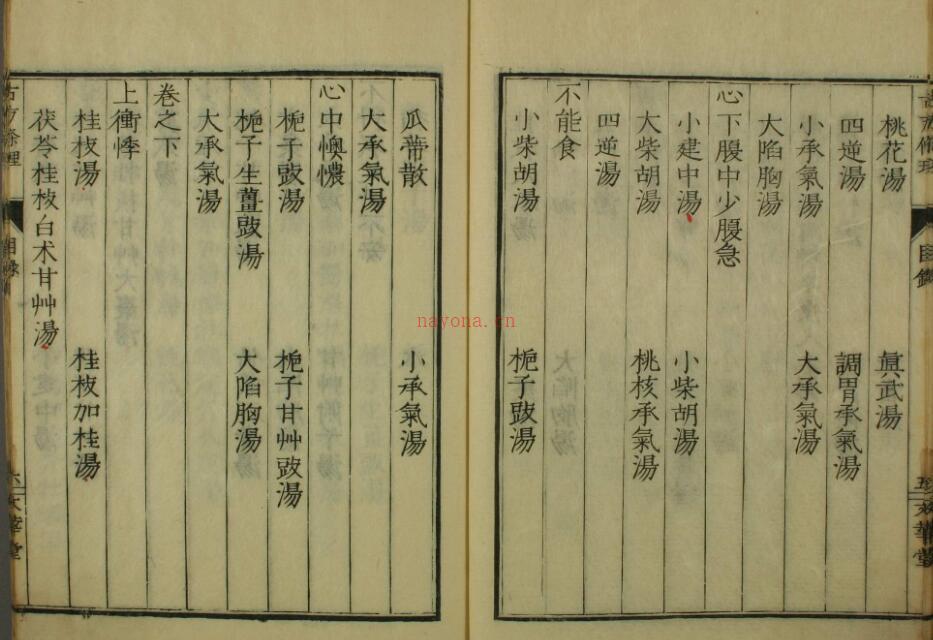 桃花湯　眞武湯
四逆湯　調胃承氣湯
小承氣湯　大承氣湯
大陷胸湯
心下腹中少腹急
小建中湯　小柴胡湯
大柴胡湯　桃核承氣湯
四逆湯
不能食
小柴胡湯　梔子豉湯
瓜蒂散　小承氣湯
大承氣湯
心中懊憹
梔子豉湯　梔子甘艸豉湯
梔子生薑豉湯　大陷胸湯
大承氣湯
卷之下
上衝悸
桂枝湯　桂枝加桂湯
茯苓桂枝白术甘艸湯
目錄
文華堂
nayona.cn